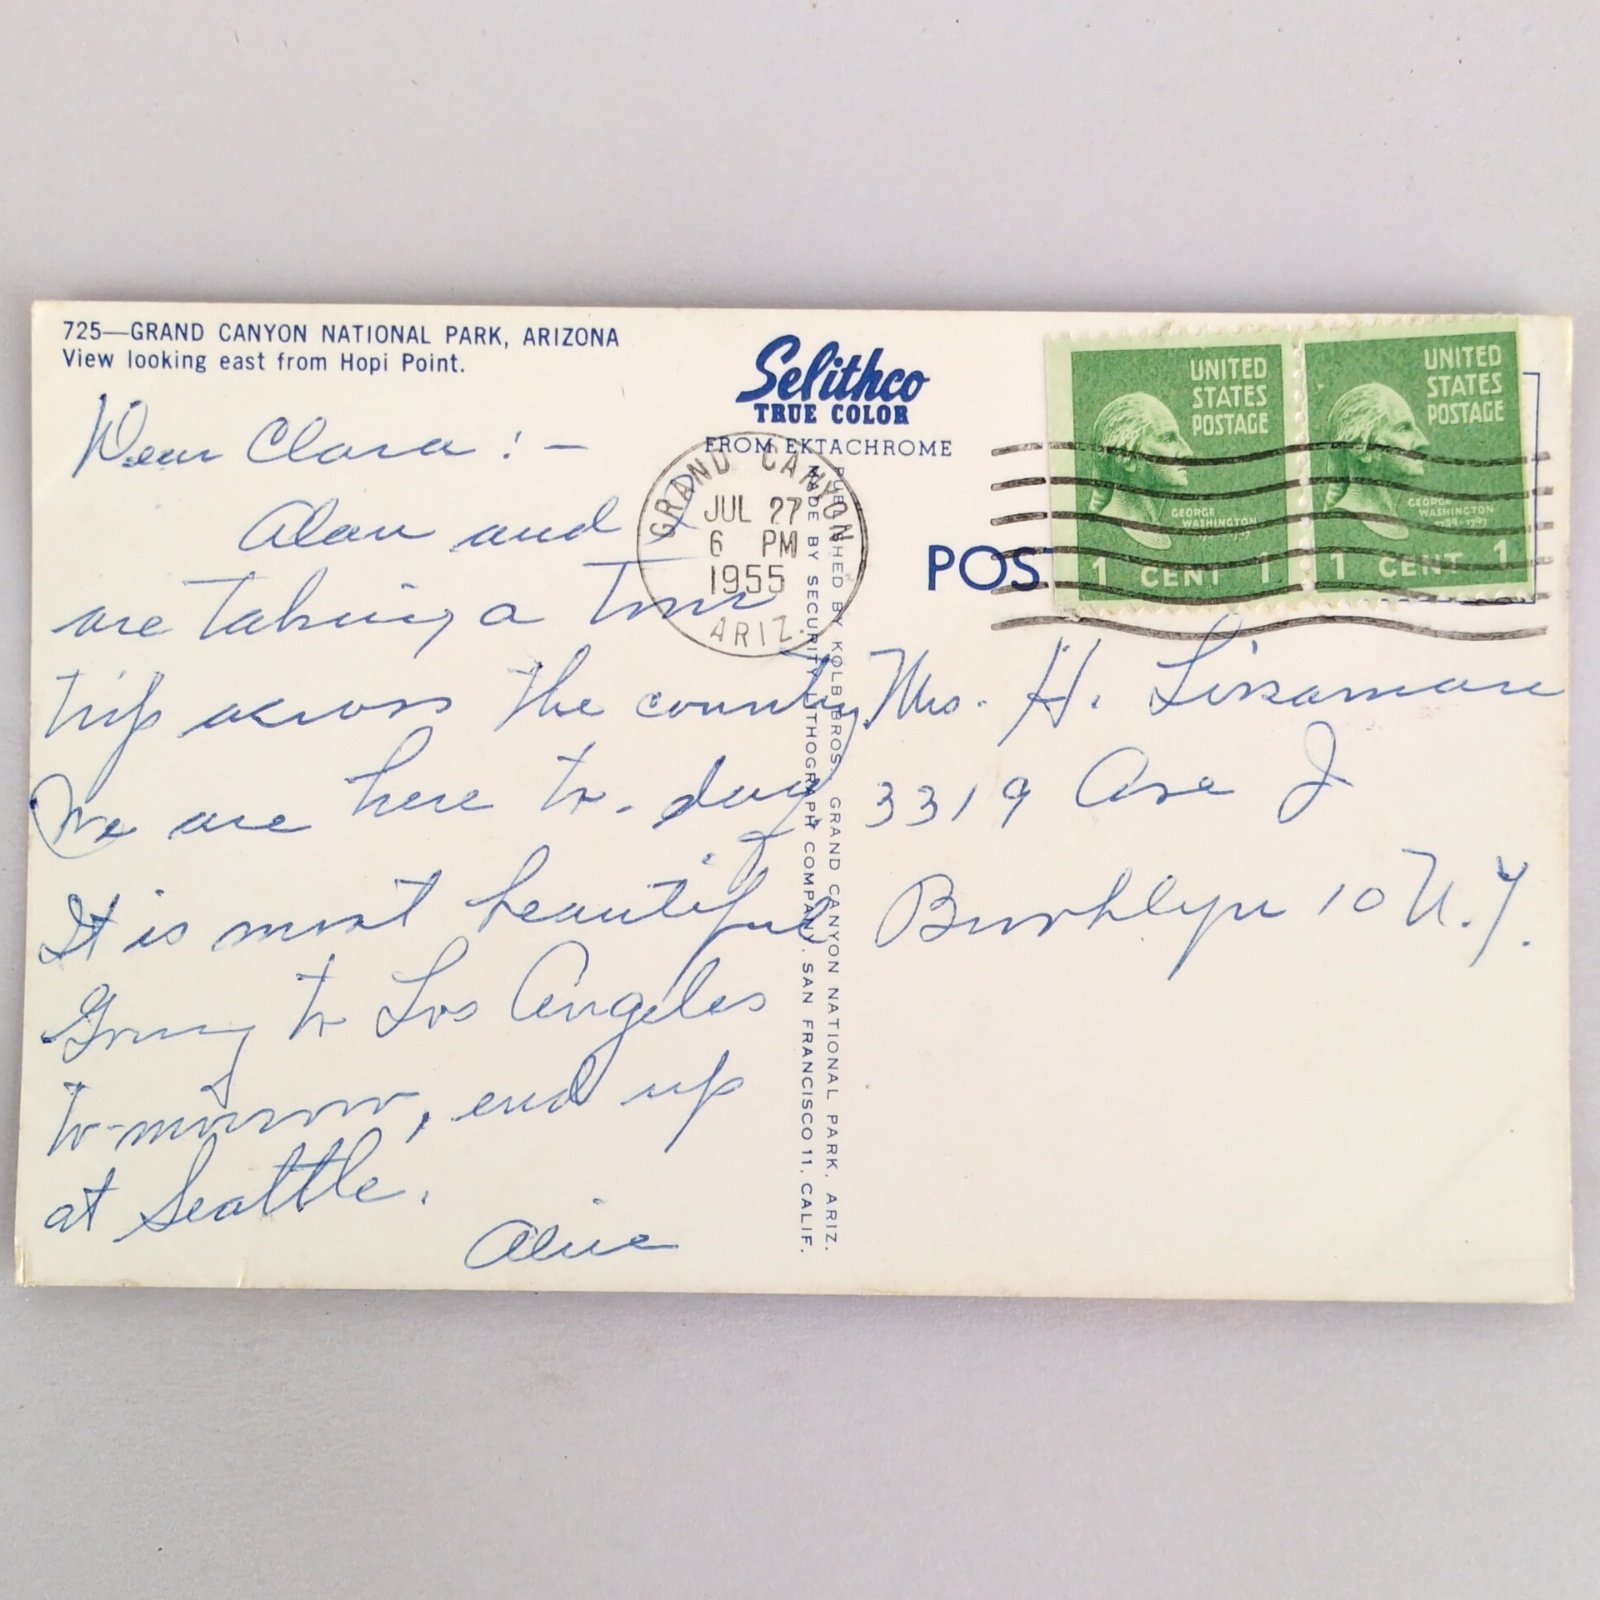 725—GRAND CANYON NATIONAL PARK, ARIZONA
View looking east from Hopi Point.
Dear Clara: —
Alan and I
are taking a Tour
trip across the country.
We are here to-day
It is most beautiful
Going to Los Angeles
to-morrow, end up
at Seattle.
Alice
Selithco
TRUE COLOR
FROM EKTACHROME
GRAND CANYON
JUL 27
6 PM
1955
ARIZ.
PUBLISHED BY KOLB BROS. GRAND CANYON NATIONAL PARK, ARIZ.
MADE BY SECURITY LITHOGRAPH COMPANY, SAN FRANCISCO 11, CALIF.
POS
UNITED
STATES
POSTAGE
GEORGE
WASHINGTON
1 CENT 1
UNITED
STATES
POSTAGE
GEORGE
WASHINGTON
1789-1797
1 CENT 1
Mrs. H.
3319 Ave J
Brooklyn 10 N.Y.